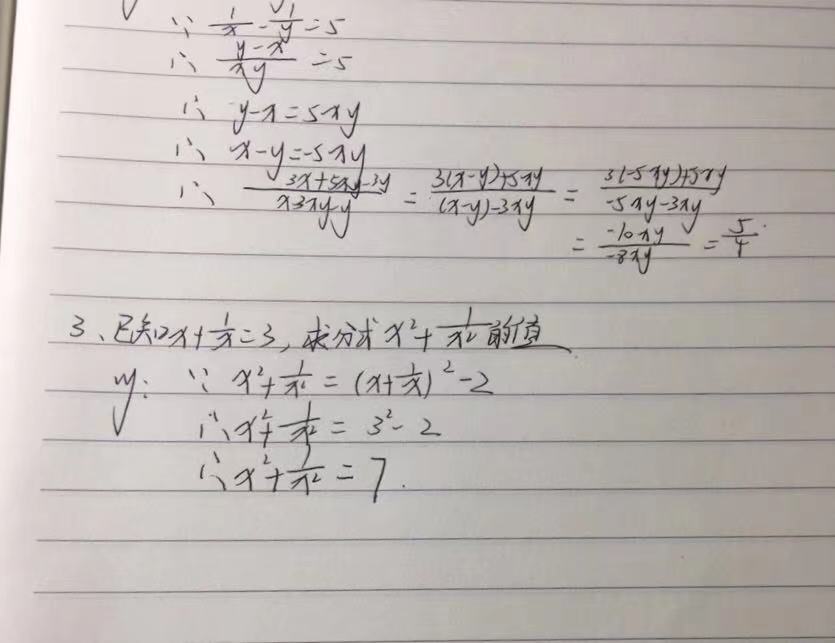 ∵ 1/x - 1/y = 5
∴ (y-x)/(xy) = 5
∴ y-x=5xy
∴ x-y=-5xy
∴ (3x+5xy-3y)/(x-3xy-y) = (3(x-y)+5xy)/((x-y)-3xy) = (3(-5xy)+5xy)/(-5xy-3xy)
= (-10xy)/(-8xy) = 5/4.
3、已知x+1/x=3,求分式x²+1/x²的值
∵ x²+1/x² = (x+1/x)²-2
∴ x²+1/x² = 3²-2
∴ x²+1/x² = 7.